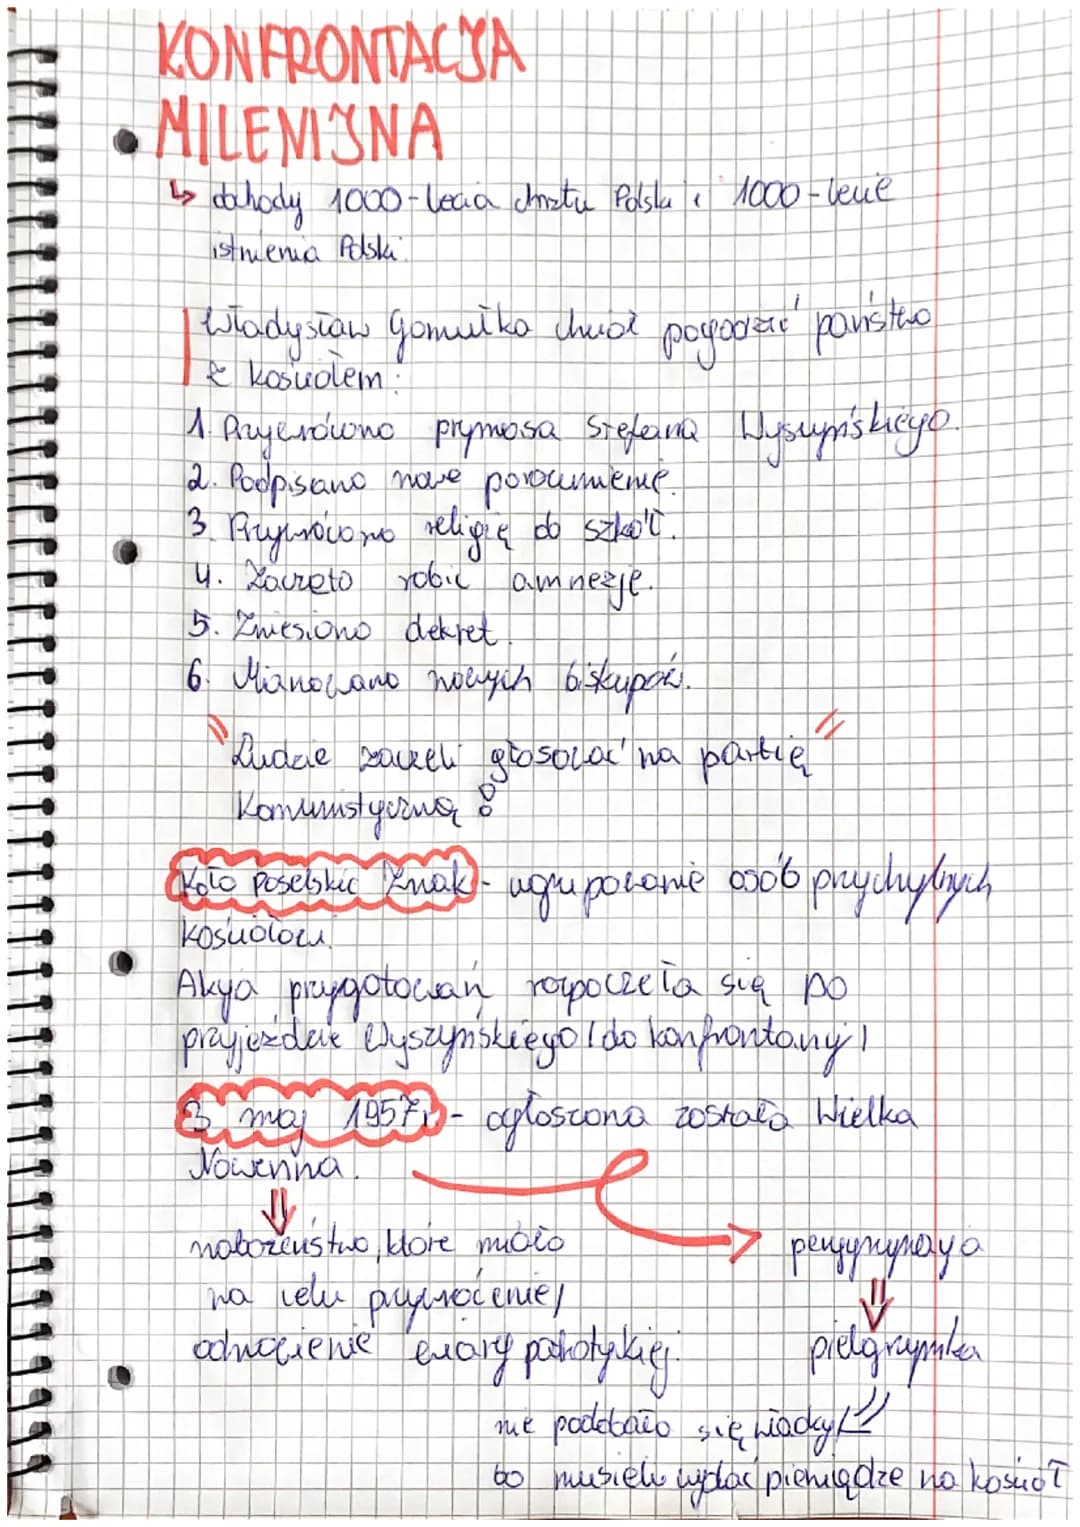 KONFRONTACJA
MILENIJNA
↳ dochody 1000-lecia chrztu Polski i 1000-lecie
istnienia Polski.
Władysław Gomułka chciał pogodzić państwo
z kościołem:
1. Przywrócono prymasa Stefana Wyszyńskiego.
2. Podpisano nowe porozumienie.
3. Przywrócono religię do szkół.
4. Zaczęto robić amnezję.
5. Zniesiono dekret.
6. Mianowano nowych biskupów.
"Ludzie zaczęli głosować na partię"
Komunistyczną!
Koło poselskie Znak - ugrupowanie osób przychylnych
kościołowi.
Akcja przygotowań rozpoczęła się po
przyjeździe Wyszyńskiego /do konfrontacji/
3 maj 1957r - ogłoszona została Wielka
Nowenna.
⇓
nabożeństwo, które miało
na celu przywrócenie/
odnowienie wiary
⇓
pielgrzymka
nie podobało się władzy
bo musieli wydać pieniądze na kościół